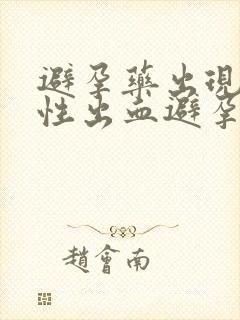 避孕藥出現
性出血避孕
趙會南